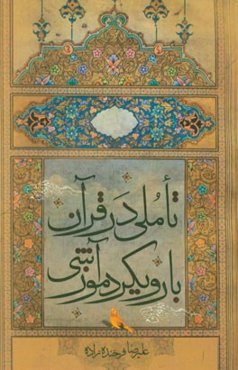 تأملی در قرآن
با رویکرد آموزشی
علیرضا فرخنده‌زاده